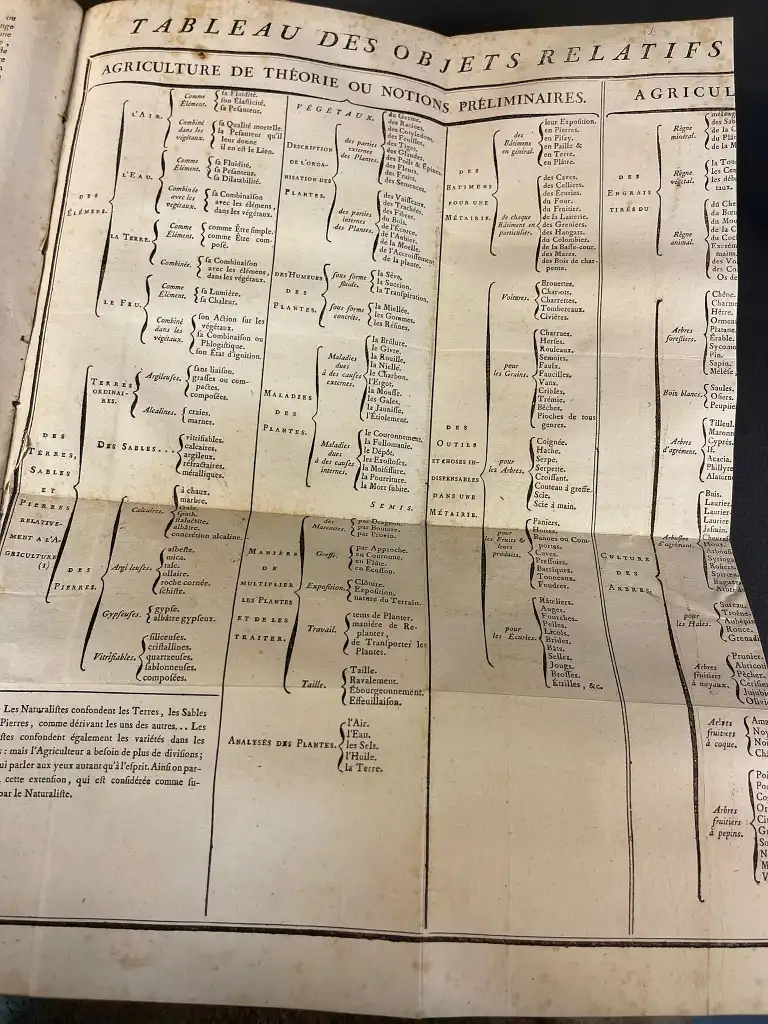 TABLEAU DES OBJETS RELATIFS
AGRICULTURE DE THÉORIE OU NOTIONS PRÉLIMINAIRES.
DES ÉLÉMENS.
L'AIR.
Comme Élément.
sa Fluidité.
son Élasticité.
sa Pesanteur.
Combiné dans les végétaux.
sa Qualité mortelle.
la Pesanteur qu'il
leur donne
il en est le Lien.
L'EAU.
Comme Élément.
sa Fluidité.
sa Pesanteur.
sa Dilatabilité.
Combinée avec les végétaux.
sa Combinaison
avec les élémens,
dans les végétaux.
LA TERRE.
Comme Élément.
comme Être simple.
comme Être com-
posé.
Combinée.
sa Combinaison
avec les élémens,
dans les végétaux.
LE FEU.
Comme Élément.
sa Lumière.
sa Chaleur.
Combiné dans les végétaux.
son Action sur les
végétaux.
sa Combinaison ou
Phlogistique.
son État d'ignition.
DES TERRES, SABLES ET PIERRES RELATIVE-
MENT A L'A-
GRICULTURE
(1)
TERRES ORDINAI-
RES.
Argileuses.
sans liaison.
grasses ou com-
pactes.
composées.
Alcalines.
craies.
marnes.
DES SABLES...
vitrifiables.
calcaires.
argileux.
réfractaires.
métalliques.
DES PIERRES.
Calcaires.
à chaux.
marbre.
craie.
spath.
stalactite.
albâtre.
concrétion alcaline.
Argileuses.
asbeste.
mica.
talc.
ollaire.
roche cornée.
schiste.
Gypseuses.
gypse.
albâtre gypseux.
Vitrifiables.
siliceuses.
cristallines.
quartzeuses.
sablonneuses.
composées.
Les Naturalistes confondent les Terres, les Sables
Pierres, comme dérivant les uns des autres... Les
stes confondent également les variétés dans les
: mais l'Agriculteur a besoin de plus de divisions;
ui parler aux yeux autant qu'à l'esprit. Ainsi on par-
cette extension, qui est considérée comme su-
par le Naturaliste.
VÉGÉTAUX.
DESCRIPTION DE L'ORGA-
NISATION DES PLANTES.
des parties externes des Plantes.
du Germe.
des Racines.
des Cotyledons.
des Feuilles.
des Tiges.
des Glandes.
des Poils & Épines.
des Fleurs.
des Fruits.
des Semences.
des parties internes des Plantes.
des Vaisseaux.
des Trachées.
des Fibres.
du Bois.
de l'Écorce.
de l'Aubier.
de la Moelle.
de l'Accroissement
de la plante.
DES HUMEURS DES PLANTES.
sous forme fluide.
la Sève.
la Succion.
la Transpiration.
sous forme concrète.
la Miellée.
les Gommes.
les Résines.
MALADIES DES PLANTES.
Maladies dues à des causes externes.
la Brûlure.
le Givre.
la Rouille.
la Nielle.
le Charbon.
l'Ergot.
la Mousse.
les Gales.
la Jaunisse.
l'Étiolement.
Maladies dues à des causes internes.
le Couronnement.
la Fullomanie.
le Dépôt.
les Exostoses.
la Moisissure.
la Pourriture.
la Mort subite.
MANIÈRE DE MULTIPLIER LES PLANTES ET DE LES TRAITER.
SEMIS.
des Marcottes.
par Drageon.
par Bouture.
par Provin.
Greffe.
par Approche.
en Couronne.
en Flûte.
en Écusson.
Exposition.
Clôture.
Exposition.
nature du Terrain.
Travail.
tems de Planter.
manière de Re-
planter,
de Transporter les
Plantes.
Taille.
Taille.
Ravalement.
Ébourgeonnement.
Effeuillaison.
ANALYSES DES PLANTES.
l'Air.
l'Eau.
les Sels.
l'Huile.
la Terre.
DES BATIMENS POUR UNE MÉTAIRIE.
des Bâtimens en général.
leur Exposition.
en Pierres.
en Pisay.
en Paille &
en Terre.
en Plâtre.
de chaque Bâtiment en particulier.
des Caves.
des Celliers.
des Écuries.
du Four.
du Fruitier.
de la Laiterie.
des Greniers.
des Hangars.
du Colombier.
de la Basse-cour.
des Mares.
des Bois de char-
pente.
DES OUTILS ET CHOSES IN-
DISPENSABLES DANS UNE MÉTAIRIE.
Voitures.
Brouettes.
Chariots.
Charrettes.
Tombereaux.
Civières.
pour les Grains.
Charrues.
Herses.
Rouleaux.
Semoirs.
Faulx.
Faucilles.
Vans.
Cribles.
Trémie.
Bêches.
Pioches de tous
genres.
pour les Arbres.
Coignée.
Hache.
Serpe.
Serpette.
Croissant.
Couteau à greffe.
Scie.
Scie à main.
pour les Fruits & leurs produits.
Paniers.
Hottes.
Bannes ou Com-
portes.
Cuves.
Pressoirs.
Barriques.
Tonneaux.
Foudres.
pour les Écuries.
Râteliers.
Auges.
Fourches.
Pelles.
Licols.
Brides.
Bâts.
Selles.
Jougs.
Brosses.
Étrilles, &c.
AGRICUL
DES ENGRAIS TIRÉS DU
Règne minéral.
mélange
des Sab
de la C
du Plât
de la M
Règne végétal.
la Tou
les Cen
les déb
taux.
Règne animal.
du Che
du Bœu
du Mou
de la C
du Coc
Excrém
mains.
des Vo
des Co
Os de
CULTURE DES ARBRES.
Arbres forestiers.
Chêne.
Charme
Hêtre.
Ormea
Platane
Érable.
Sycomo
Pin.
Sapin.
Mélèse.
Bois blancs.
Saules.
Osiers.
Peuplie
Arbres d'agrément.
Tilleul.
Maronn
Cyprès.
If.
Acacia.
Phillyre
Alaterne
Arbustes d'agrément.
Buis.
Laurier-
Laurier
Laurier
Jasmin.
Houx.
Arbous
Syringa
Rosiers
Spiræa
Baguen
pour les Haies.
Sureau.
Troëne
Aubépin
Ronce.
Grenadi
Arbres fruitiers à noyaux.
Prunier.
Abricoti
Pêcher.
Cerisier
Jujubie
Olivie
Arbres fruitiers à coque.
Ama
Noy
Noi
Châ
Arbres fruitiers à pepins.
Poi
Po
Co
Or
Ci
Gr
So
N
M
V